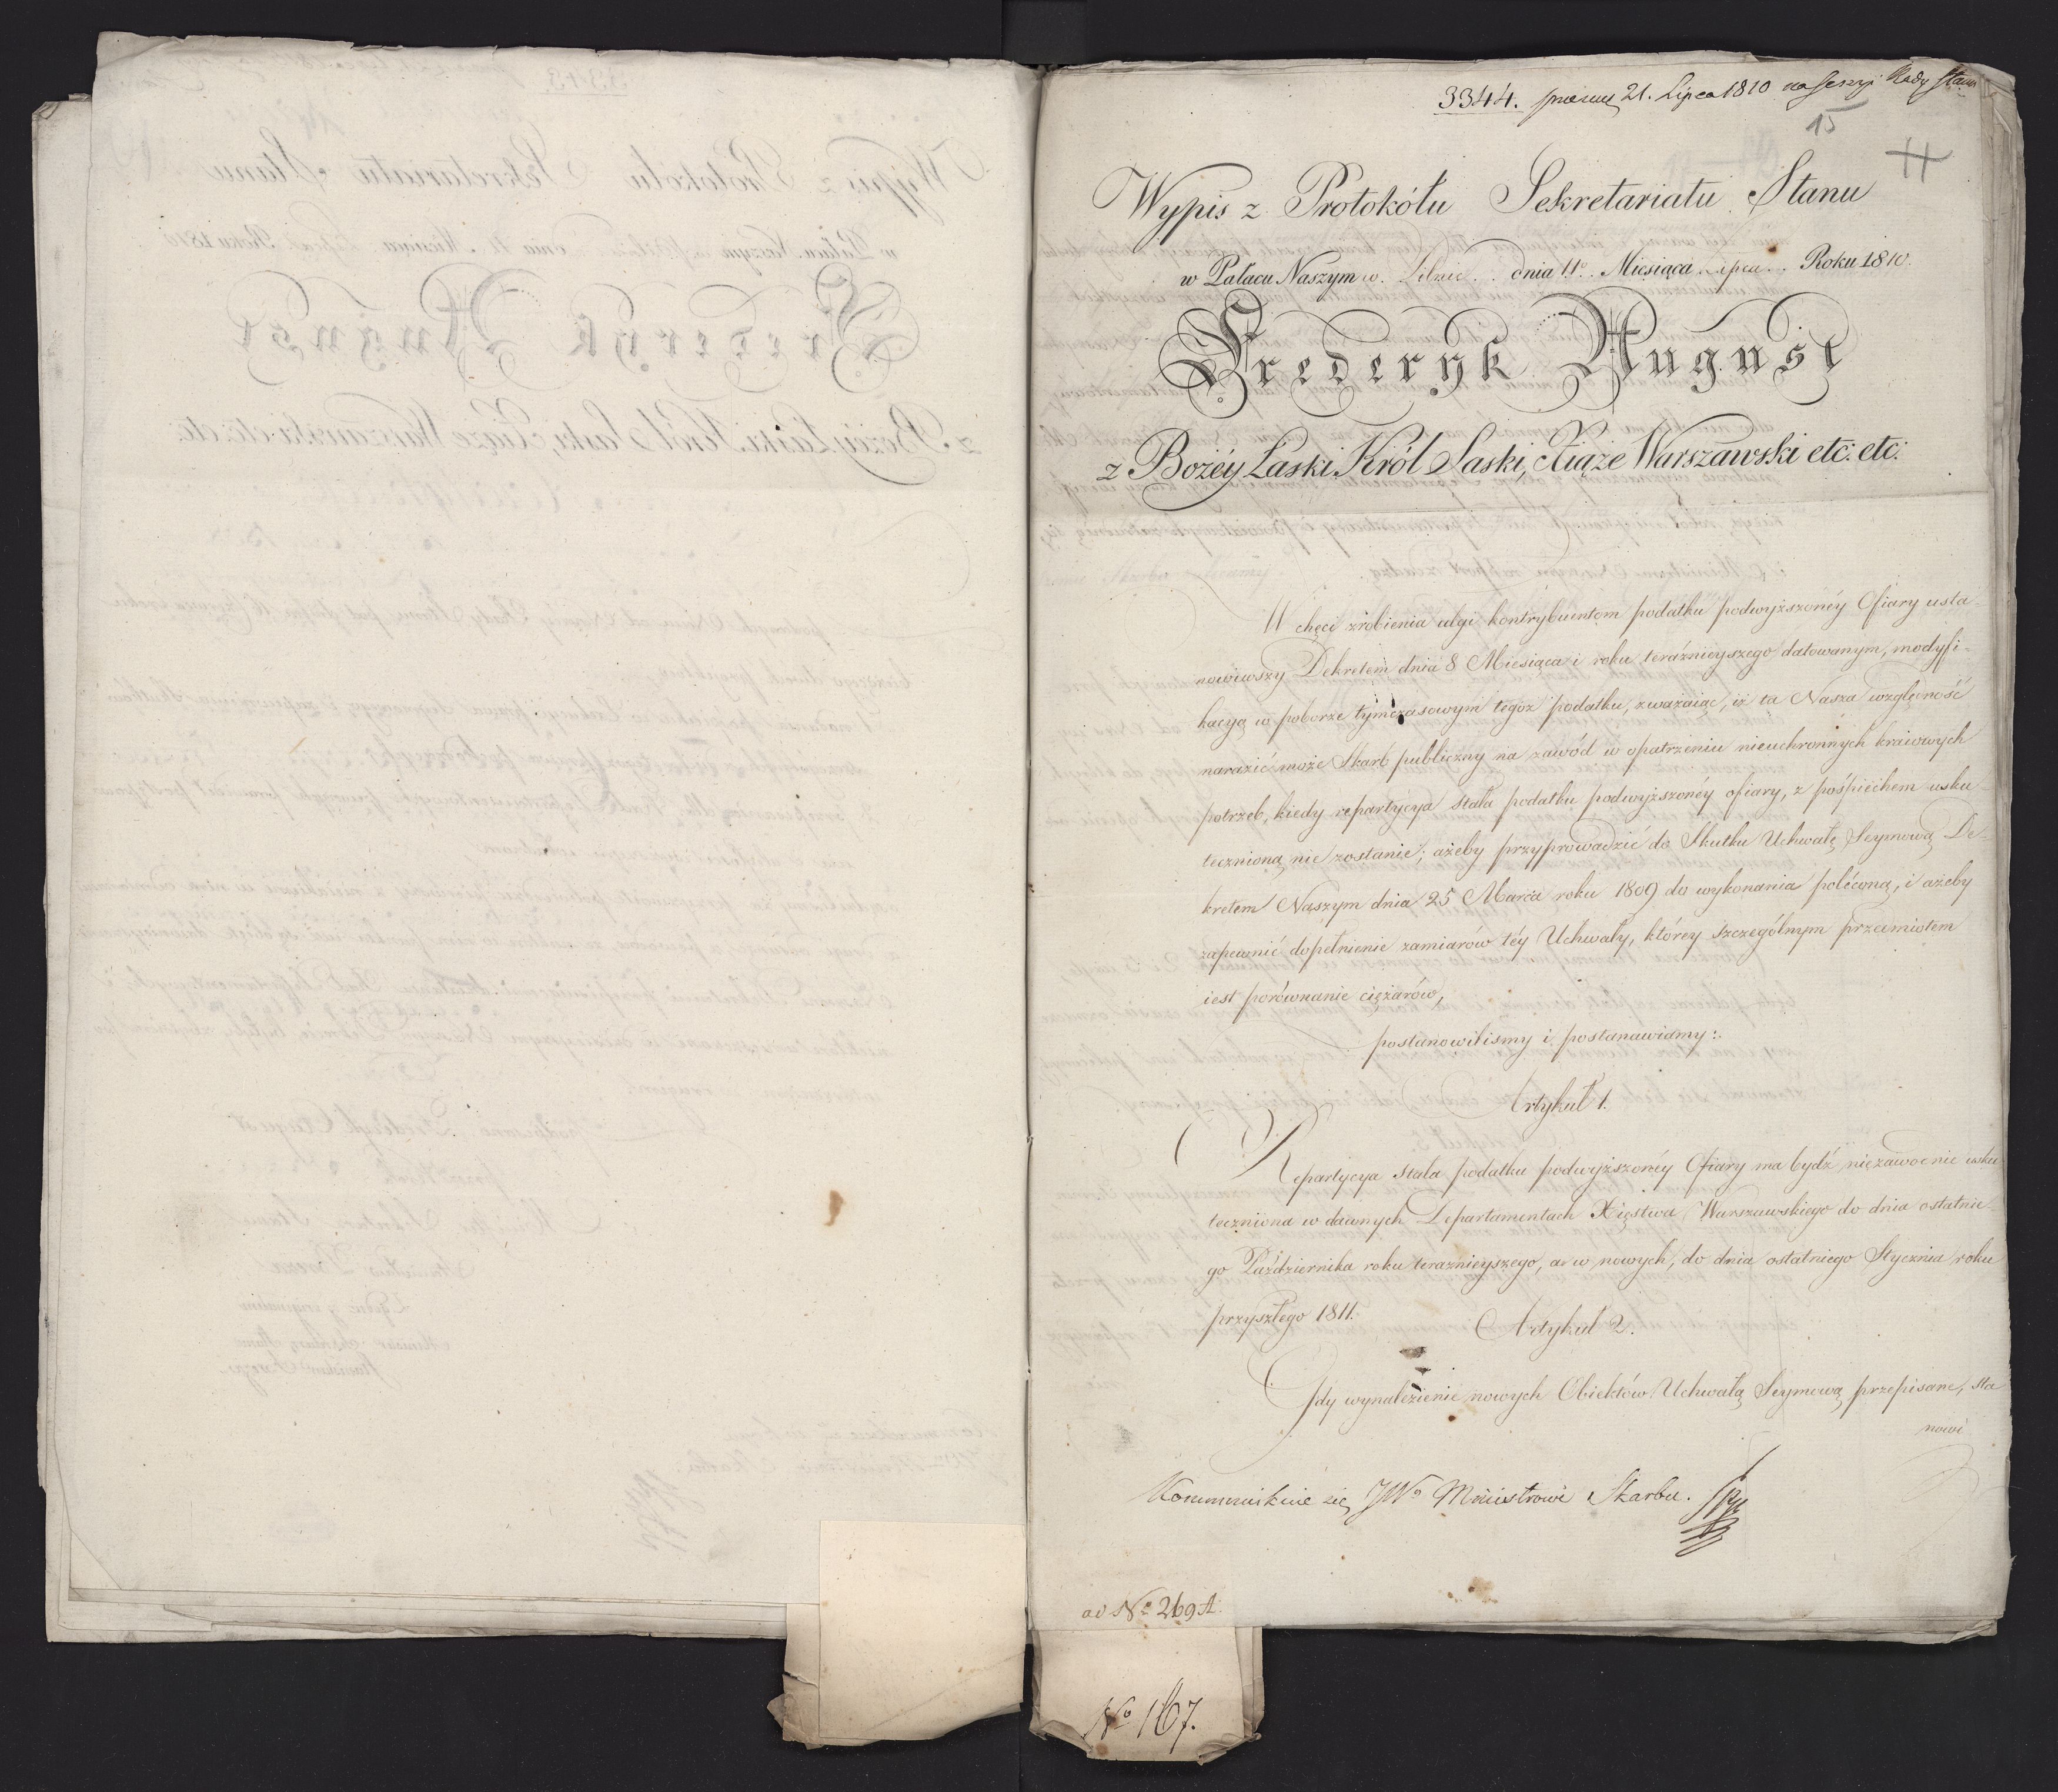 3344. 21. Lipca 1810 na Sessyi Rady Stanu
15
11
Wypis z Protokółu Sekretariatu Stanu
w Pałacu Naszym w. Pilnic . . dnia 11º. Miesiąca Lipca . . Roku 1810.
Frederyk August
z Bożéy Łaski Król Saski, Xiąże Warszawski etc: etc:
W chęci zrobienia ulgi kontrybuentom podatku podwyższonéy Ofiary usta-
nowiwszy Dekretem dnia 8 Miesiąca i roku teraźnieyszego datowanym, modyfi-
kacyą w poborze tymczasowym tegoż podatku, zważaiąc, iż ta Nasza względność
narazić może Skarb publiczny na zawód w opatrzeniu nieuchronnych kraiowych
potrzeb, kiedy repartycya stała podatku podwyższonéy ofiary, z pośpiechem usku-
teczniona nie zostanie; ażeby przyprowadzić do Skutku Uchwałę Seymową De-
kretem Naszym dnia 25 Marca roku 1809 do wykonania poleconą, i ażeby
zapewnić dopełnienie zamiarów téy Uchwały, którey szczególnym przedmiotem
iest porównanie ciężarów,
postanowiliśmy i postanawiamy:
Artykuł 1.
Repartycya stała podatku podwyższonéy Ofiary ma bydź niezawodnie usku-
teczniona w dawnych Departamentach Xięstwa Warszawskiego do dnia ostatnie-
go Października roku teraźnieyszego, a w nowych, do dnia ostatniego Stycznia roku
przyszłego 1811.
Artykuł 2.
Gdy wynalezienie nowych Obiektów Uchwałą Seymową przepisane, sta
nowi
Kommunikuie się JWº Ministrowi Skarbu.
ad Nº 269 A.
Nº 167.